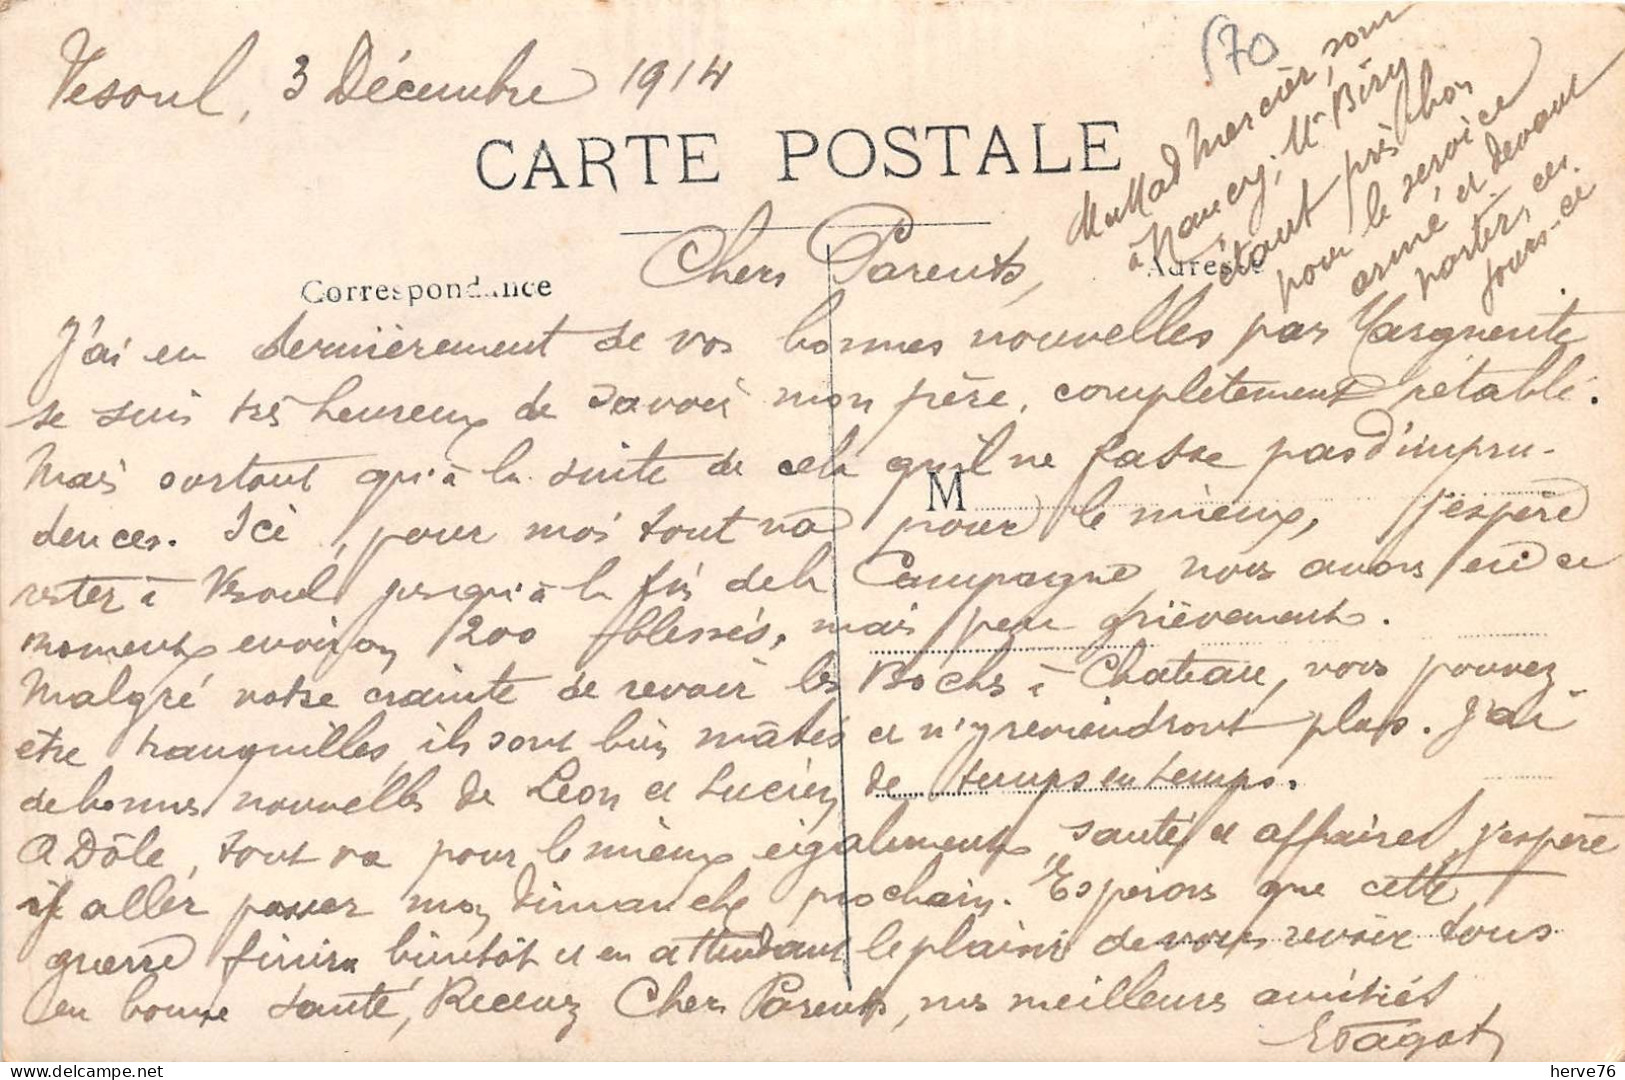 Vesoul, 3 Décembre 1914
570
CARTE POSTALE
Correspondance
Adresse
M
Chers Parents,
J'ai eu dernièrement de vos bonnes nouvelles par Marguerite
se suis très heureux de savoir mon père, complètement rétabli.
Mais surtout qu'à la suite de cela qu'il ne fasse pas d'impru-
dences. Ici, pour moi tout va pour le mieux, j'espère
rester à Vesoul jusqu'à la fin de la Campagne nous avons en ce
moment environ 200 blessés, mais peu grièvement.
Malgré votre crainte de revoir les Bochs à Chateau, vous pouvez
être tranquilles, ils sont bien mâtés et n'y reviendront plus. J'ai
de bonnes nouvelles de Léon et Lucien de temps en temps.
A Dôle, tout va pour le mieux également, santé et affaires, j'espère
y aller passer mon Dimanche prochain. Espérons que cette
guerre finira bientôt et en attendant le plaisir de vous revoir tous
en bonne santé, Recevez Chers Parents, nos meilleures amitiés
EPagot
Mad Mercier, sont
à Nancy, Mr Biry
étant pris bon
pour le service
armé et devant
partir ces
jours-ci
delcampe.net
herve76